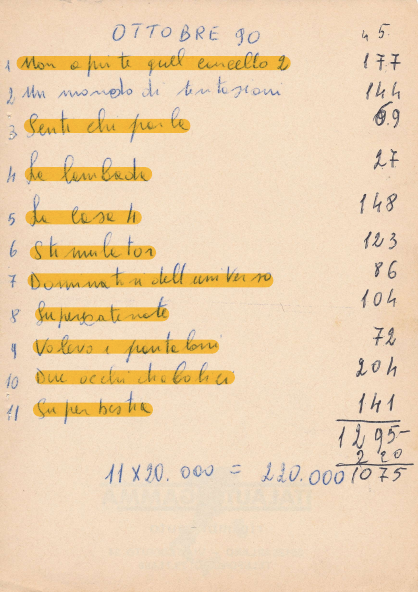 OTTOBRE 90 4 5.
1 Non aprite quel cancello 2 177
2 Un mondo di tentazioni 144
3 Senti chi parla 69
4 La lambada 27
5 La casa 4 148
6 Stimulator 123
7 Dominatori dell'universo 86
8 Superscatenate 104
9 Volevo i pantaloni 72
10 Due occhi diabolici 204
11 Superbestia 141
1295-
220
11 X 20.000 = 220.000 1075